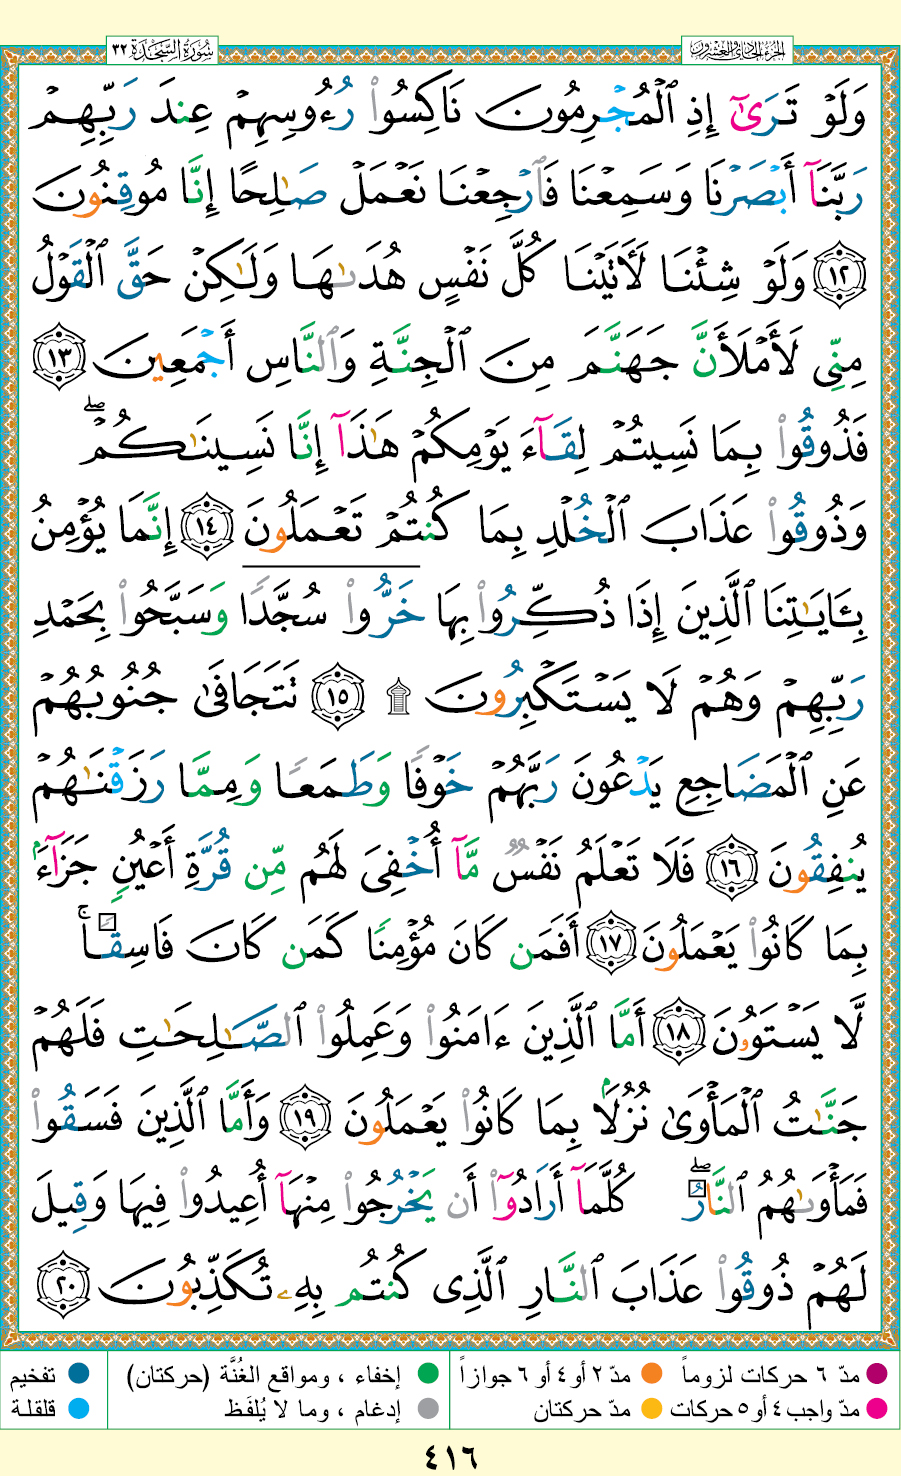 سُورَةُ السَّجْدَةِ ٣٢
الجُزءُ الحَادِي وَالعِشْرُونَ
وَلَوْ تَرَىٰٓ إِذِ ٱلْمُجْرِمُونَ نَاكِسُوا۟ رُءُوسِهِمْ عِندَ رَبِّهِمْ
رَبَّنَآ أَبْصَرْنَا وَسَمِعْنَا فَٱرْجِعْنَا نَعْمَلْ صَـٰلِحًا إِنَّا مُوقِنُونَ
﴿١٢﴾ وَلَوْ شِئْنَا لَـَٔاتَيْنَا كُلَّ نَفْسٍ هُدَىٰهَا وَلَـٰكِنْ حَقَّ ٱلْقَوْلُ
مِنِّى لَأَمْلَأَنَّ جَهَنَّمَ مِنَ ٱلْجِنَّةِ وَٱلنَّاسِ أَجْمَعِينَ ﴿١٣﴾
فَذُوقُوا۟ بِمَا نَسِيتُمْ لِقَآءَ يَوْمِكُمْ هَـٰذَآ إِنَّا نَسِينَـٰكُمْ ۖ
وَذُوقُوا۟ عَذَابَ ٱلْخُلْدِ بِمَا كُنتُمْ تَعْمَلُونَ ﴿١٤﴾ إِنَّمَا يُؤْمِنُ
بِـَٔايَـٰتِنَا ٱلَّذِينَ إِذَا ذُكِّرُوا۟ بِهَا خَرُّوا۟ سُجَّدًا وَسَبَّحُوا۟ بِحَمْدِ
رَبِّهِمْ وَهُمْ لَا يَسْتَكْبِرُونَ ۩ ﴿١٥﴾ تَتَجَافَىٰ جُنُوبُهُمْ
عَنِ ٱلْمَضَاجِعِ يَدْعُونَ رَبَّهُمْ خَوْفًا وَطَمَعًا وَمِمَّا رَزَقْنَـٰهُمْ
يُنفِقُونَ ﴿١٦﴾ فَلَا تَعْلَمُ نَفْسٌ مَّآ أُخْفِىَ لَهُم مِّن قُرَّةِ أَعْيُنٍ جَزَآءًۢ
بِمَا كَانُوا۟ يَعْمَلُونَ ﴿١٧﴾ أَفَمَن كَانَ مُؤْمِنًا كَمَن كَانَ فَاسِقًا ۚ
لَّا يَسْتَوُۥنَ ﴿١٨﴾ أَمَّا ٱلَّذِينَ ءَامَنُوا۟ وَعَمِلُوا۟ ٱلصَّـٰلِحَـٰتِ فَلَهُمْ
جَنَّـٰتُ ٱلْمَأْوَىٰ نُزُلًۢا بِمَا كَانُوا۟ يَعْمَلُونَ ﴿١٩﴾ وَأَمَّا ٱلَّذِينَ فَسَقُوا۟
فَمَأْوَىٰهُمُ ٱلنَّارُ ۖ كُلَّمَآ أَرَادُوٓا۟ أَن يَخْرُجُوا۟ مِنْهَآ أُعِيدُوا۟ فِيهَا وَقِيلَ
لَهُمْ ذُوقُوا۟ عَذَابَ ٱلنَّارِ ٱلَّذِى كُنتُم بِهِۦ تُكَذِّبُونَ ﴿٢٠﴾
مدّ ٦ حركات لزوماً مدّ ٢ أو ٤ أو ٦ جوازاً إخفاء ، ومواقع الغُنَّة (حركتان) تفخيم
مدّ واجب ٤ أو ٥ حركات مدّ حركتان إدغام ، وما لا يُلفَظ قلقلة
٤١٦